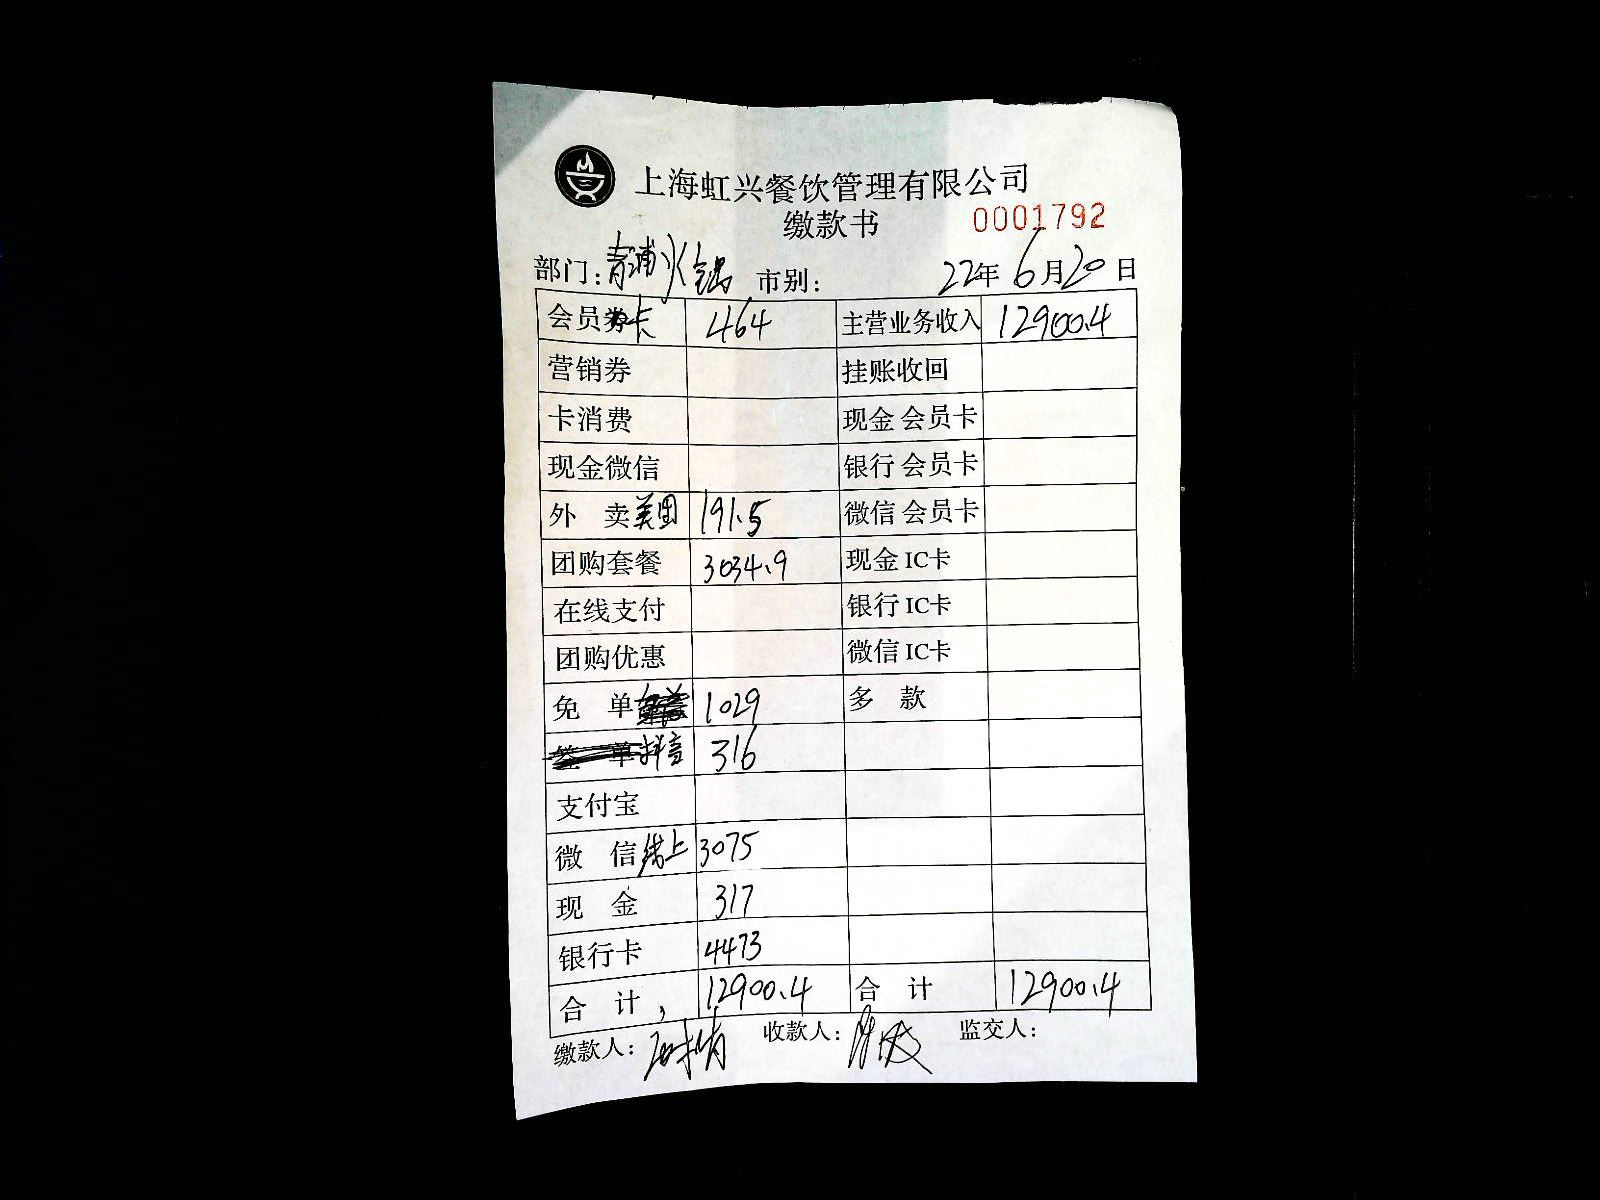 上海虹兴餐饮管理有限公司
缴款书 0001792
部门：青浦火锅 市别： 22年6月20日
会员卡 464 主营业务收入 12900.4
营销券 挂账收回
卡消费 现金 会员卡
现金微信 银行 会员卡
外 卖美团 191.5 微信 会员卡
团购套餐 3034.9 现金 IC卡
在线支付 银行 IC卡
团购优惠 微信 IC卡
免 单 1029 多 款
签 单抖音 316
支付宝
微 信线上 3075
现 金 317
银行卡 4473
合 计， 12900.4 合 计 12900.4
缴款人： 收款人： 监交人：